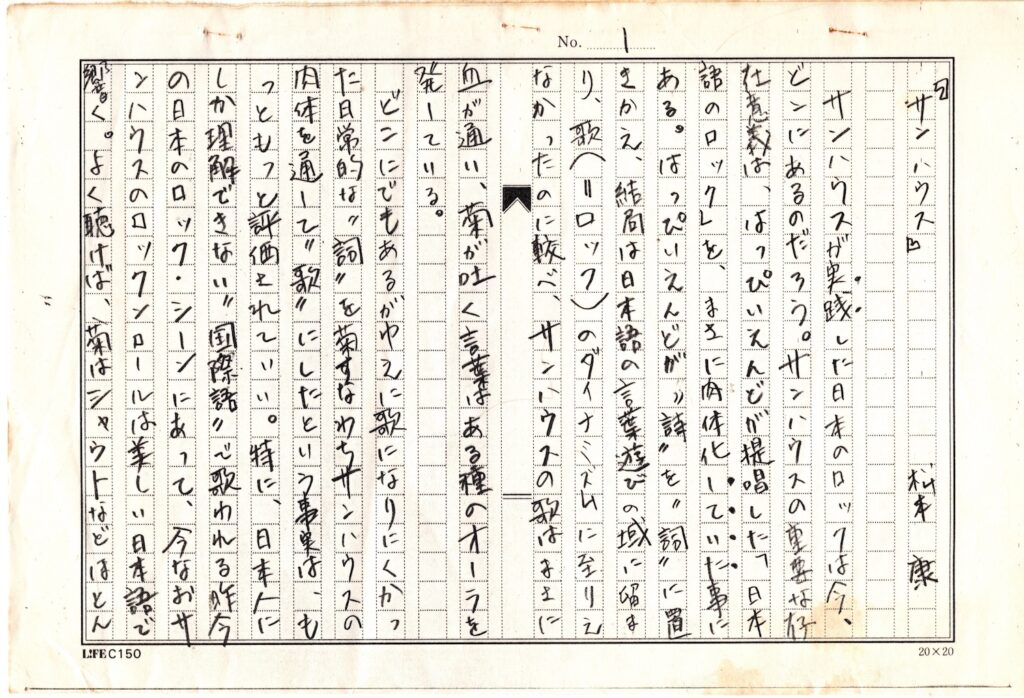 No. 1
『サンハウス』 松本 康
サンハウスが実践した日本のロックは今、
どこにあるのだろう。サンハウスの重要な存
在意義は、はっぴいえんどが提唱した「日本
語のロック」を、まさに肉体化していた事に
ある。はっぴいえんどが〝詩〟を〝詞〟に置
きかえ、結局は日本語の言葉遊びの域に留ま
り、歌(=ロック)のダイナミズムに至りえ
なかったのに較べ、サンハウスの歌はまさに
血が通い、菊が吐く言葉はある種のオーラを
発している。
どこにでもあるがゆえに歌になりにくかっ
た日常的な〝詞〟を菊すなわちサンハウスの
肉体を通して〝歌〟にしたという事実は、も
っともっと評価されていい。特に、日本人に
しか理解できない〝国際語〟で歌われる昨今
の日本のロック・シーンにあって、今なおサ
ンハウスのロックンロールは美しい日本語で
響く。よく聴けば、菊はシャウトなどほとん
LIFE C150
20×20